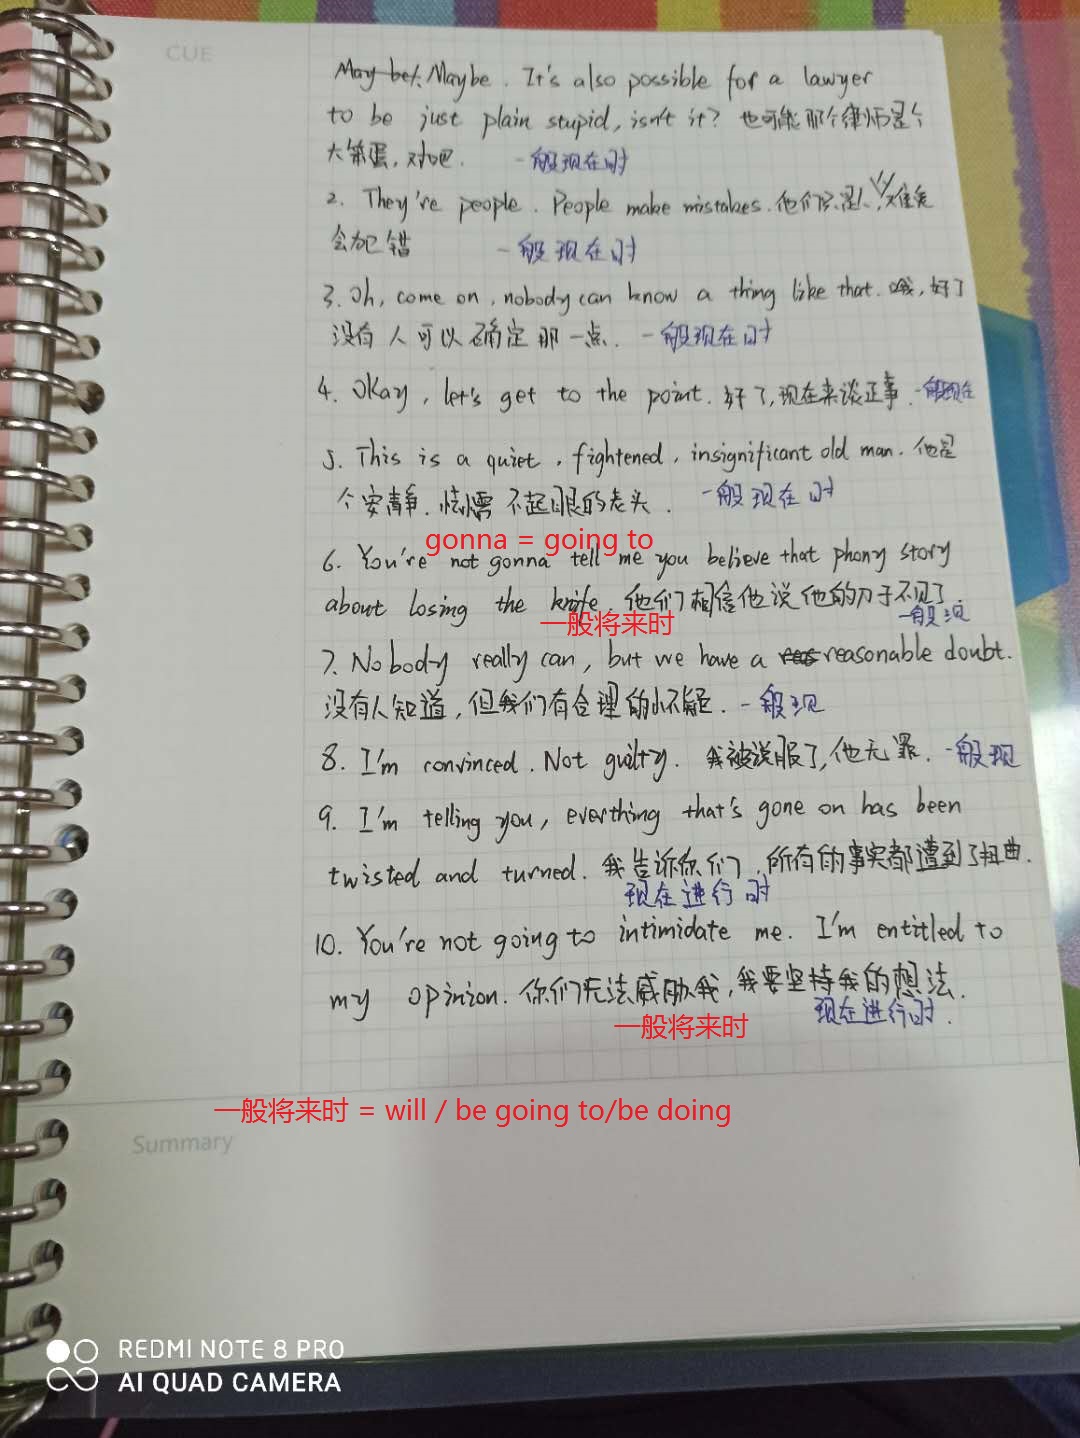 CUE
May be, Maybe. It's also possible for a lawyer
to be just plain stupid, isn't it? 也可能那个律师是个
大笨蛋,对吧. 一般现在时
2. They're people. People make mistakes.他们只是人,难免
会犯错 一般现在时
3. Oh, come on, nobody can know a thing like that. 哦,好了
没有人可以确定那一点. 一般现在时
4. Okay, let's get to the point. 好了,现在来谈正事. 一般现在
5. This is a quiet, fightened, insignificant old man. 他是
个安静. 怯懦 不起眼的老头. 一般现在时
gonna = going to
6. You're not gonna tell me you believe that phony story
about losing the knife. 他们相信他说他的刀子不见了.
一般将来时 一般现
7. Nobody really can, but we have a reasonable doubt.
没有人知道,但我们有合理的怀疑. 一般现
8. I'm convinced. Not guilty. 我被说服了,他无罪. 一般现
9. I'm telling you, everthing that's gone on has been
twisted and turned. 我告诉你们,所有的事实都遭到了扭曲.
现在进行时
10. You're not going to intimidate me. I'm entitled to
my opinion. 你们无法威胁我,我要坚持我的想法.
一般将来时 现在进行时.
一般将来时 = will / be going to/be doing
Summary
REDMI NOTE 8 PRO
AI QUAD CAMERA